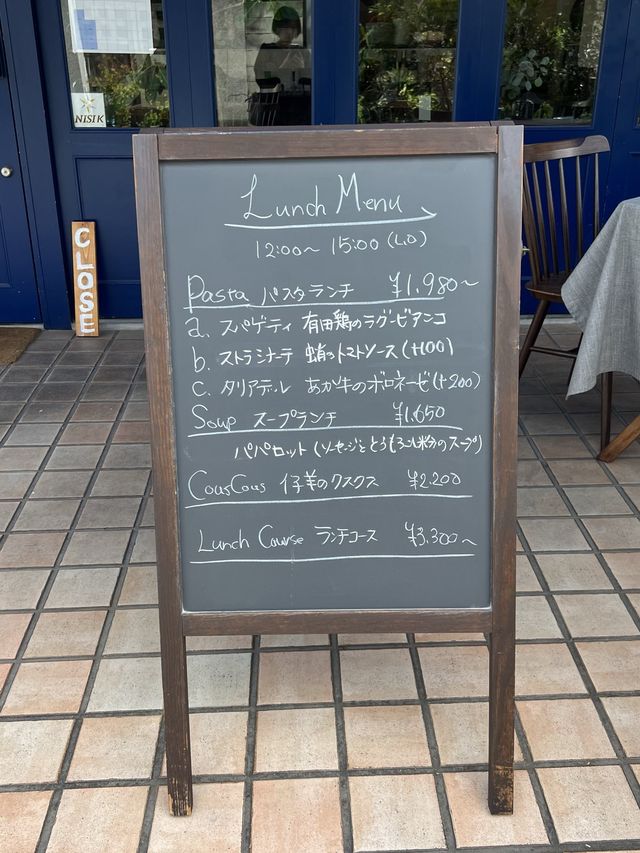 NISIK
CLOSE
Lunch Menu
12:00~ 15:00 (L.O)
Pasta パスタランチ ¥1,980~
a. スパゲティ 有田鶏のラグービアンコ
b. ストラシナーテ 蛸のトマトソース (+100)
c. タリアテール あか牛のボロネーゼ (+200)
Soup スープランチ ¥1,650
パパロット (ソーセージととうもろこし粉のスープ)
CousCous 仔羊のクスクス ¥2,200
Lunch Course ランチコース ¥3,300~